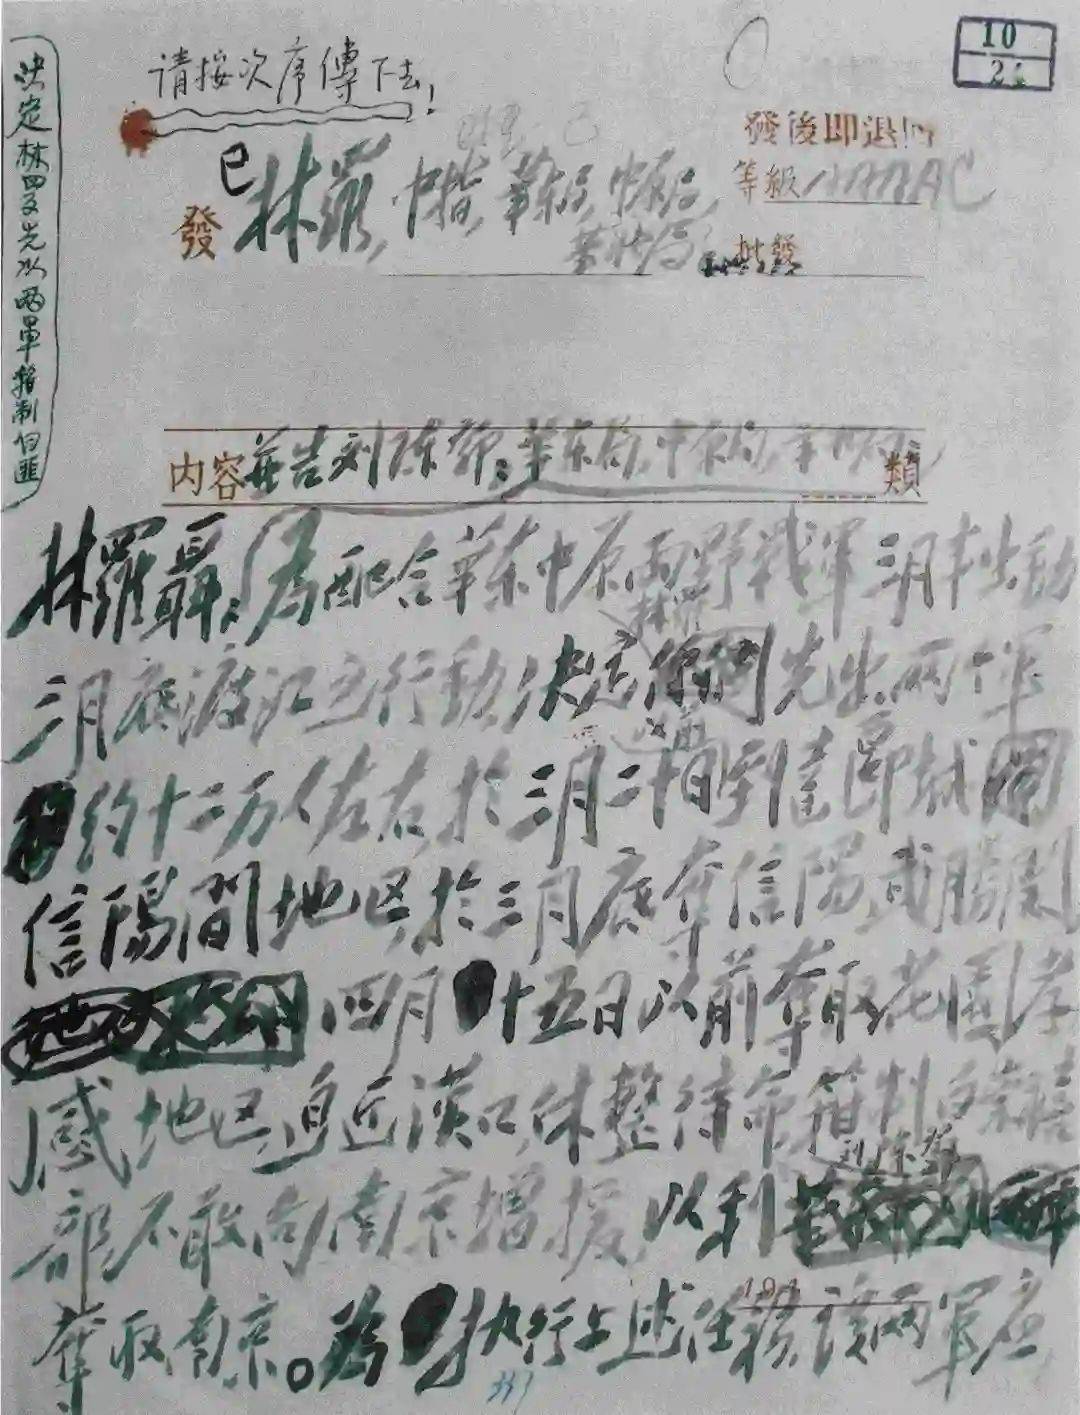 10
2
请按次序傳下去!
發後即退
已
林羅,
等級 AAAAC
發
批發
决定林罗先以两軍箝制白匪
内容 並告刘陈鄧,華东局,中原局, 類
林羅聶:為配合華东中原两野戰軍三月半出動
三月底渡江之行動,决定林羅先出两个軍
約十二万人左右於三月二十日以前到達郾城
信陽間地区,於三月底奪信陽武勝関
四月十五日以前奪取花園孝
感地区,迫近漢口,休整待命,箝制白崇禧
部不敢向南京增援,以利刘陈鄧
奪取南京。為執行上述任務,該两軍應
337